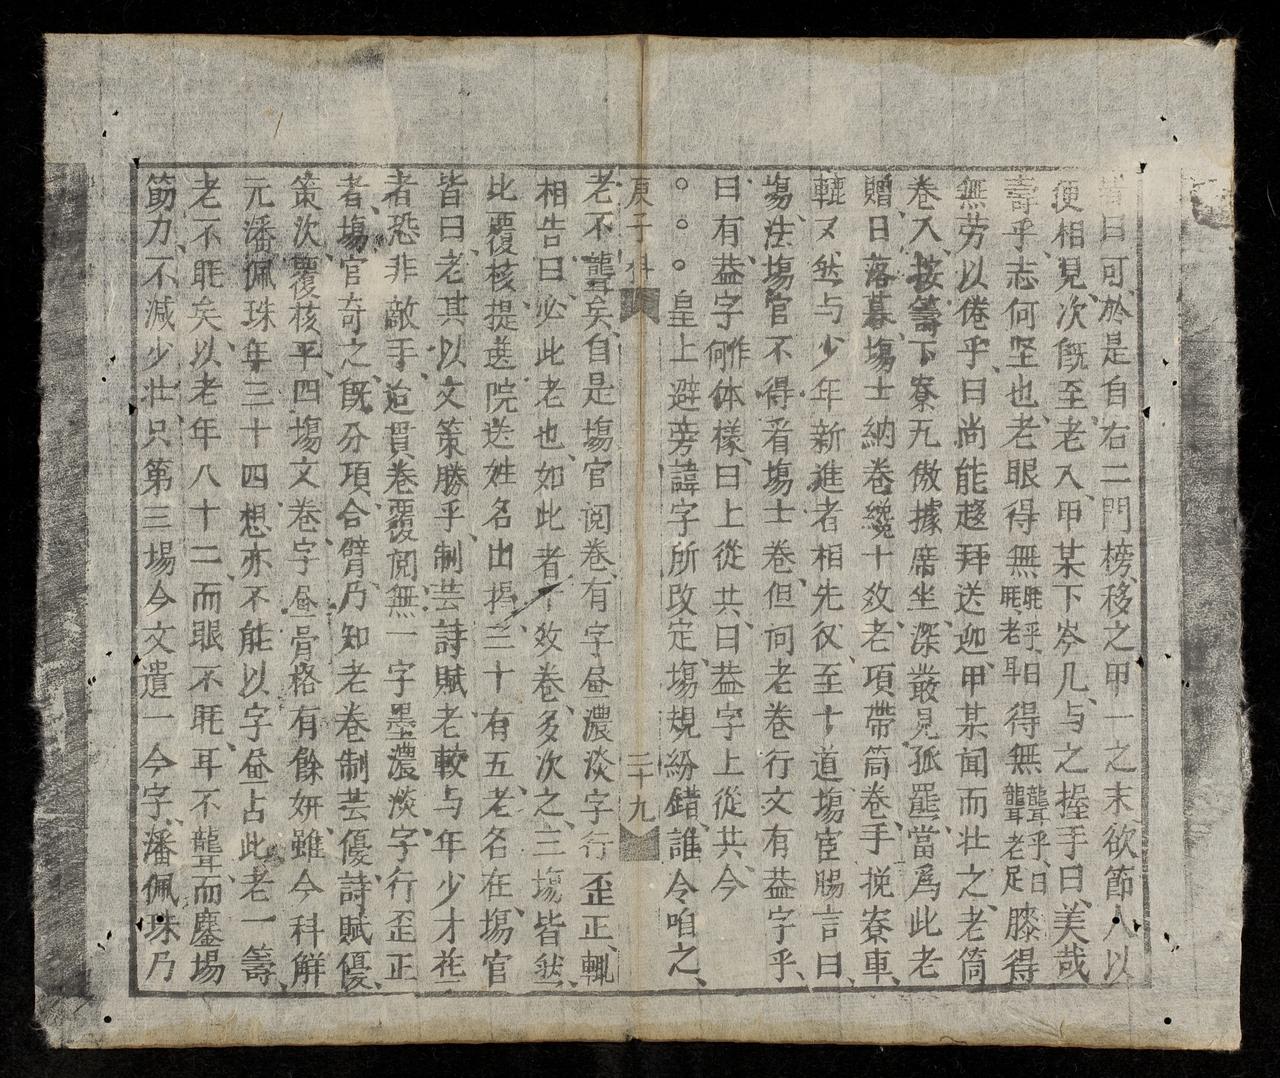 皆曰可於是自右二門榜移之甲一之末欲節人以
便相見次既至老入甲某下岑几与之握手曰美哉
壽乎志何坚也老眼得無眊乎曰眊老耳得無聾乎曰聾老足膝得
無劳以倦乎曰尚能趍拜送迎甲某闻而壮之老筒
卷入按籌下寮兀傲據席坐深叢見孤罷當爲此老
贈日落暮塲士納卷纔十效老項带筒卷手挽寮車
轆又然与少年新進者相先仅至十道塲官賜言曰
塲法塲官不得看塲士卷但问老卷行文有益字乎
曰有益字作何体樣曰上從共曰益字上從共今
皇上避旁諱字所改定塲規紛錯誰令咱之
庚子科 三十九
老不聾矣自是塲官阅卷有字畨濃淡字行歪正輒
相告曰必此老也如此者十效卷多次之三塲皆然
此覆核提送院送姓名出揭三十有五老名在塲官
皆曰老其以文策勝乎制芸詩賦老較与年少才花
者恐非敵手迨貫卷覆阅無一字墨濃淡字行歪正
者塲官奇之既分項合臂乃知老卷制芸優詩賦優
策次覆核平四塲文卷字畨骨格有餘妍雖今科觧
元潘佩珠年三十四想亦不能以字畨占此老一籌
老不眊矣以老年八十二而眼不眊耳不聾而鏖場
筋力不減少壮只第三場今文遣一今字潘佩珠乃